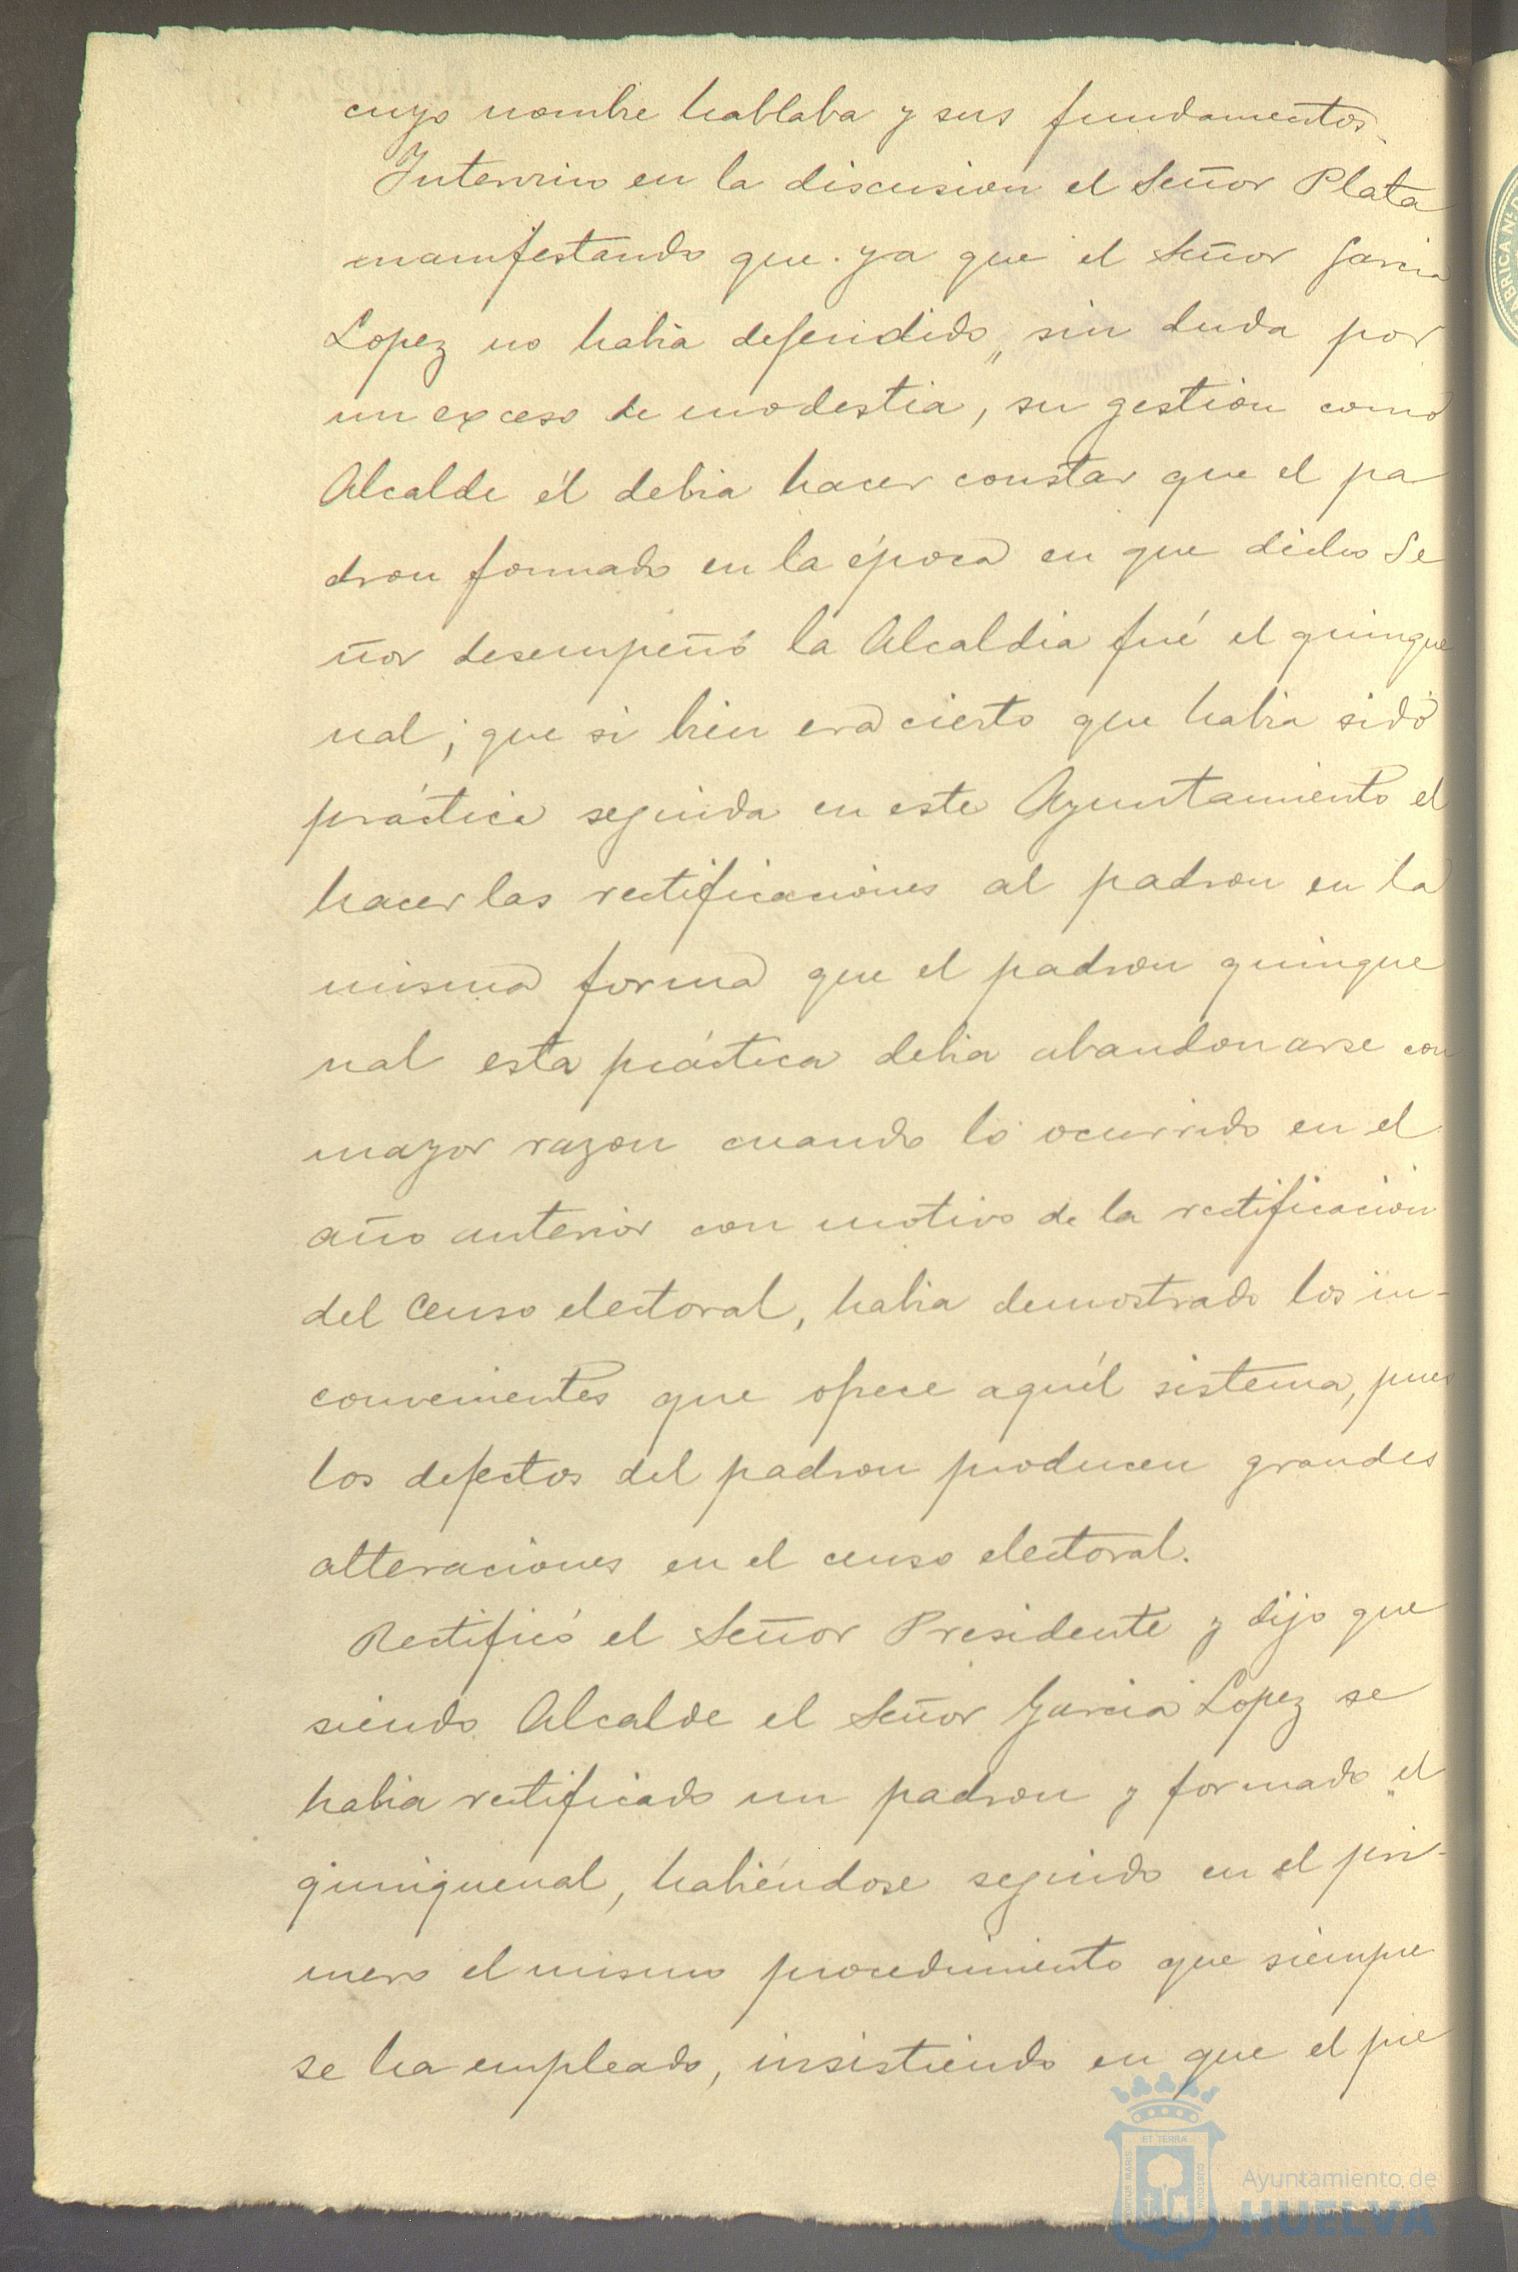 cuyo nombre hablaba y sus fundamentos.
Intervino en la discusion el Señor Plata
manifestando que ya que el Señor Garcia
Lopez no habia defendido, sin duda por
un exceso de modestia, su gestion como
Alcalde él debia hacer constar que el pa
dron formado en la época en que dicho Se
ñor desempeñó la Alcaldia fué el quinque
nal; que si bien era cierto que habia sido
práctica seguida en este Ayuntamiento el
hacer las rectificaciones al padron en la
misma forma que el padron quinque
nal esta práctica debia abandonarse con
mayor razon cuando lo ocurrido en el
año anterior con motivo de la rectificacion
del Censo electoral, habia demostrado los in-
convenientes que ofrece aquél sistema, pues
los defectos del padron producen grandes
alteraciones en el censo electoral.
Rectificó el Señor Presidente y dijo que
siendo Alcalde el Señor Garcia Lopez se
habia rectificado un padron y formado el
quinquenal, habiéndose seguido en el pri-
mero el mismo procedimiento que siempre
se ha empleado, insistiendo en que el pre
Ayuntamiento de
HUELVA